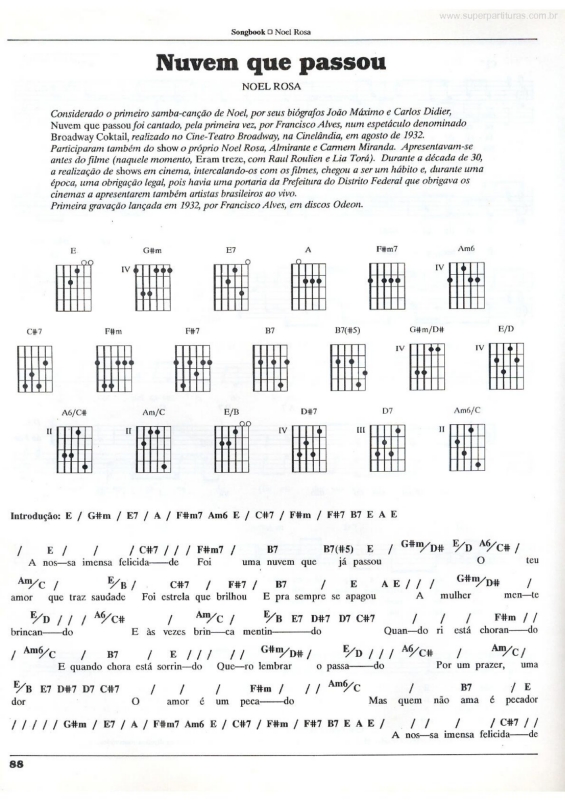 www.superpartituras.com.br
Songbook □ Noel Rosa
Nuvem que passou
NOEL ROSA
Considerado o primeiro samba-canção de Noel, por seus biógrafos João Máximo e Carlos Didier,
Nuvem que passou foi cantado, pela primeira vez, por Francisco Alves, num espetáculo denominado
Broadway Coktail, realizado no Cine-Teatro Broadway, na Cinelândia, em agosto de 1932.
Participaram também do show o próprio Noel Rosa, Almirante e Carmem Miranda. Apresentavam-se
antes do filme (naquele momento, Eram treze, com Raul Roulien e Lia Torá). Durante a década de 30,
a realização de shows em cinema, intercalando-os com os filmes, chegou a ser um hábito e, durante uma
época, uma obrigação legal, pois havia uma portaria da Prefeitura do Distrito Federal que obrigava os
cinemas a apresentarem também artistas brasileiros ao vivo.
Primeira gravação lançada em 1932, por Francisco Alves, em discos Odeon.
E G#m E7 A F#m7 Am6
IV IV
C#7 F#m F#7 B7 B7(#5) G#m/D# E/D
IV IV
A6/C# Am/C E/B D#7 D7 Am6/C
II II IV III II
Introdução: E / G#m / E7 / A / F#m7 Am6 E / C#7 / F#m / F#7 B7 E A E
/ E / / / C#7 / / / F#m7 / B7 B7(#5) E / G#m/D# E/D A6/C# /
A nos—sa imensa felicida—de Foi uma nuvem que já passou O teu
Am/C / E/B / C#7 / F#7 / B7 / E A E / / / G#m/D# /
amor que traz saudade Foi estrela que brilhou E pra sempre se apagou A mulher men—te
E/D / / / A6/C# / Am/C / E/B E7 D#7 D7 C#7 / / / F#m / /
brincan—do E às vezes brin—ca mentin—do Quan—do ri está choran—do
/ Am6/C / B7 / E / / / / G#m/D# / E/D / / / A6/C# / Am/C /
E quando chora está sorrin—do Que—ro lembrar o passa—do Por um prazer, uma
E/B E7 D#7 D7 C#7 / / / F#m / / / Am6/C / B7 / E
dor O amor é um peca—do Mas quem não ama é pecador
/ / / / / G#m / E7 / A / F#m7 Am6 E / C#7 / F#m / F#7 B7 E A E / / / / / C#7 / /
A nos—sa imensa felicida—de
88